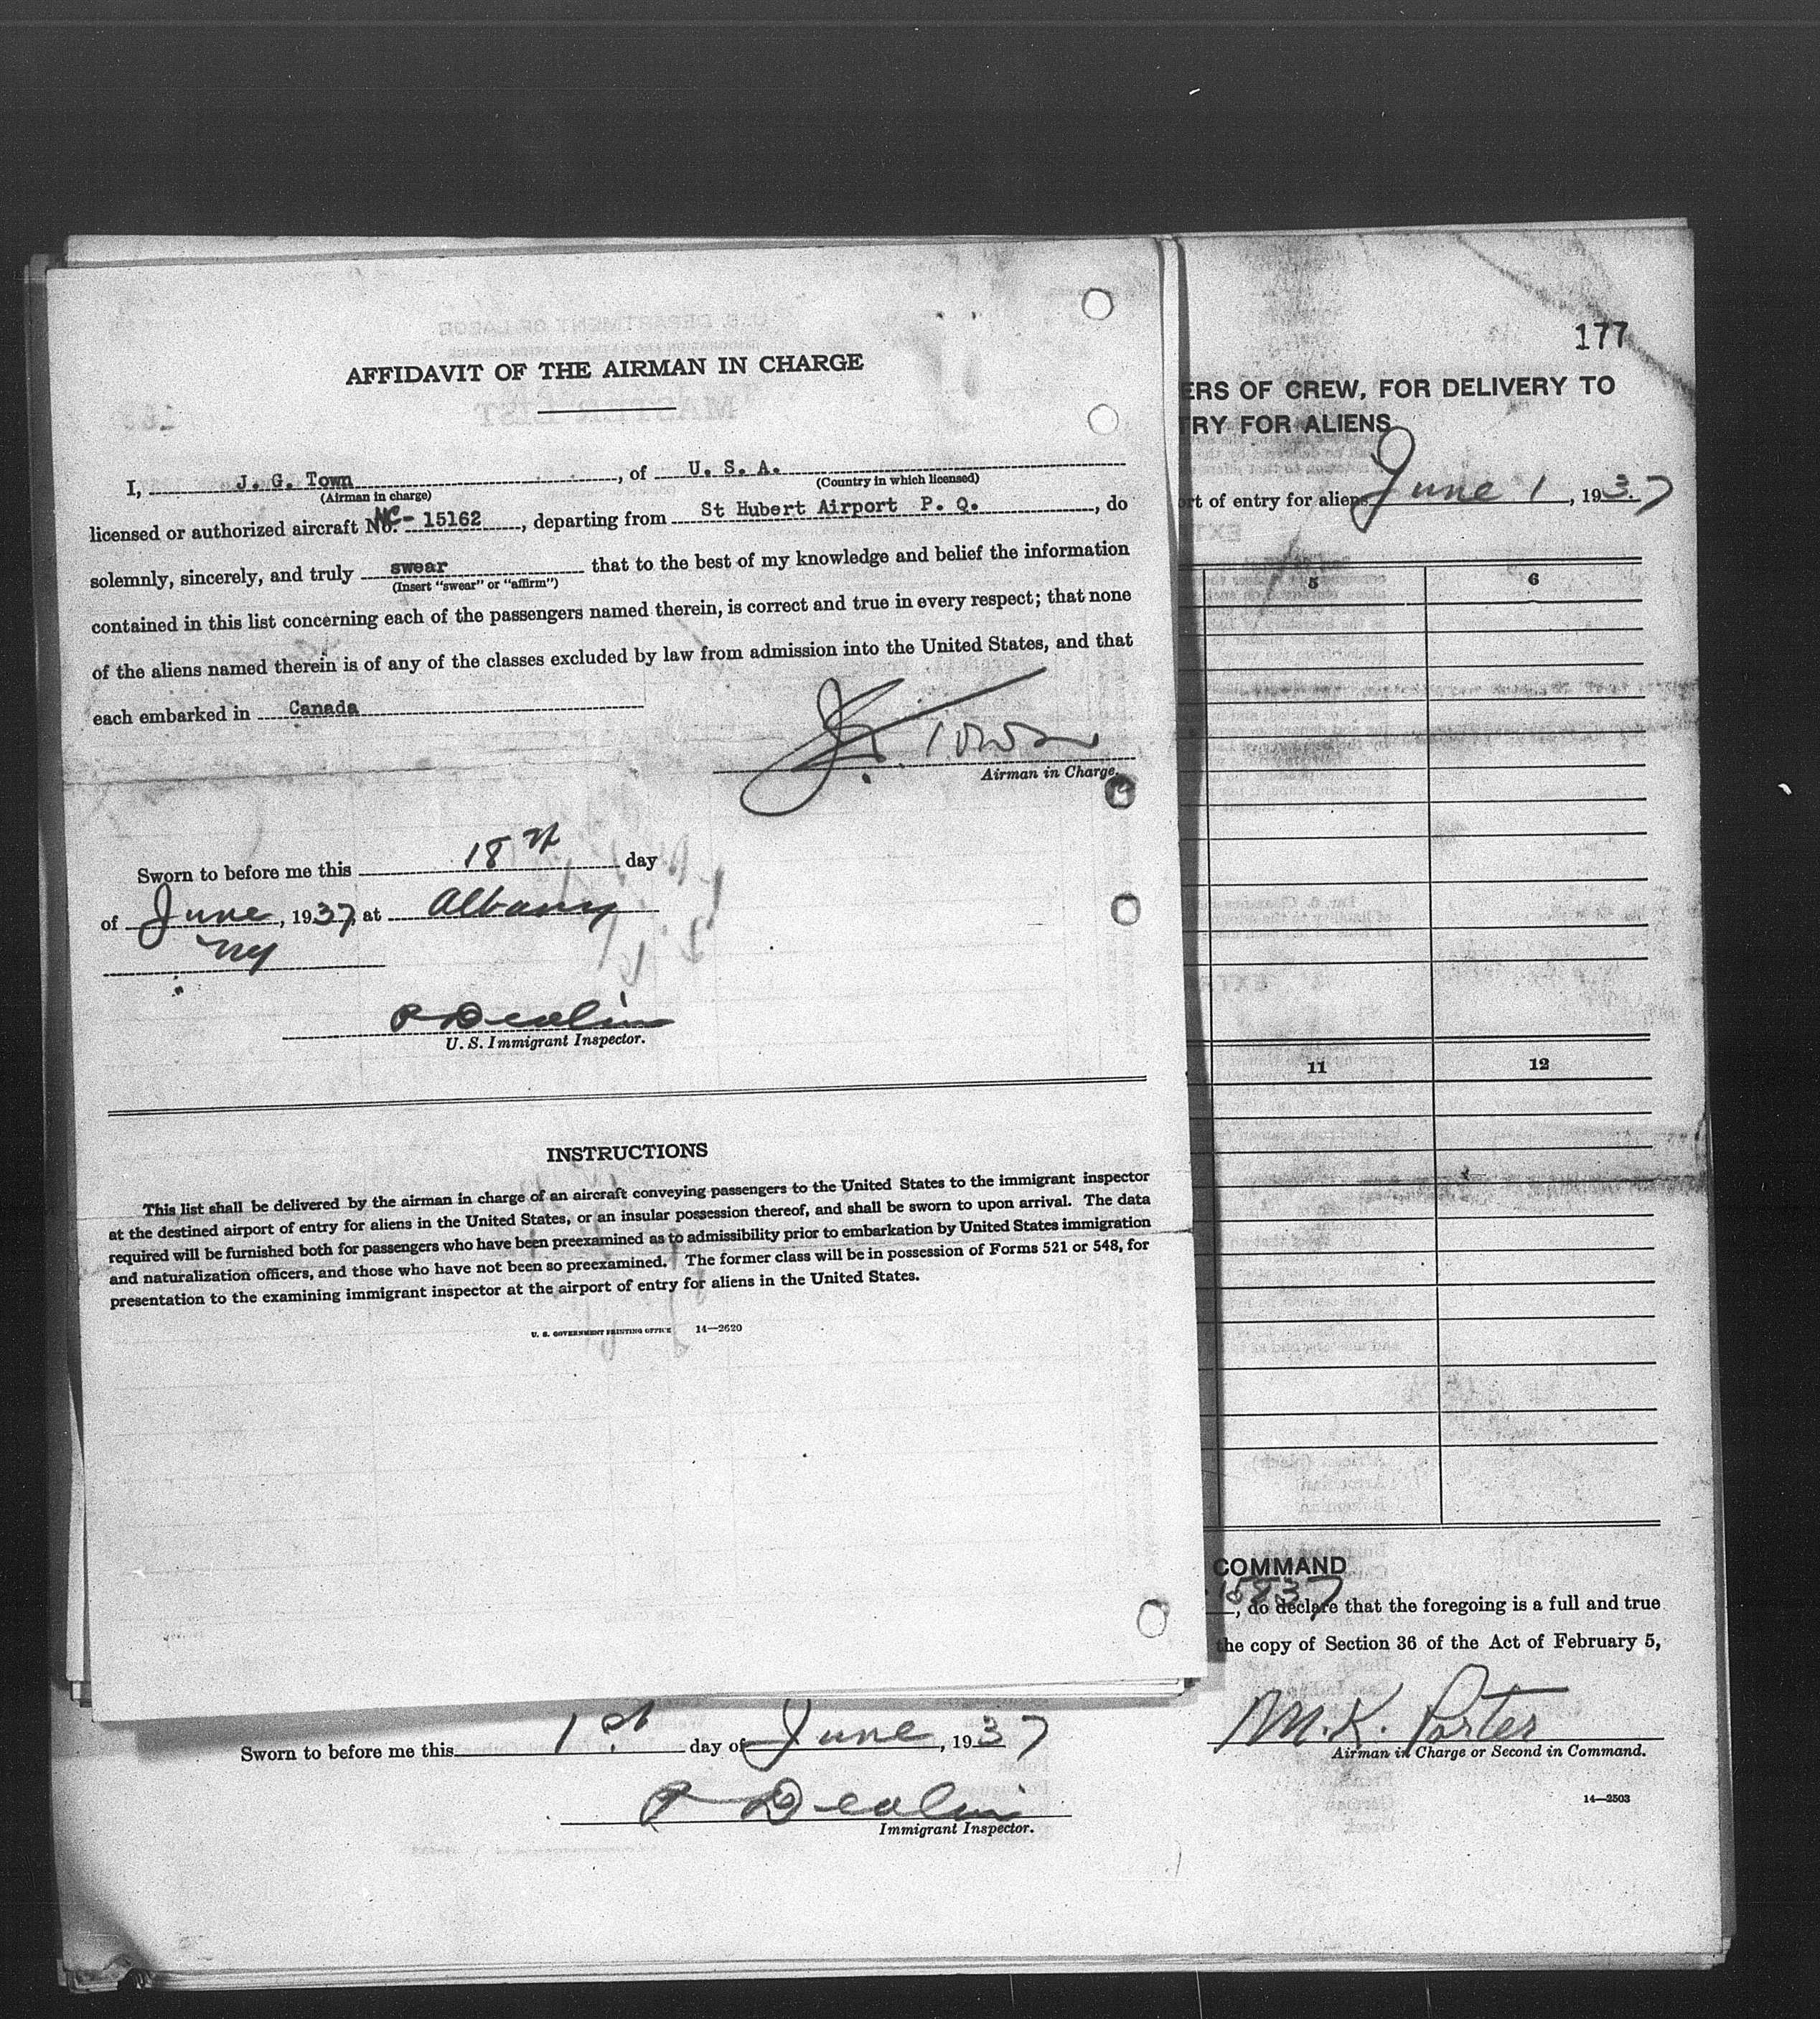 AFFIDAVIT OF THE AIRMAN IN CHARGE
I, J. G. Town, of U. S. A.
(Airman in charge) (Country in which licensed)
licensed or authorized aircraft No. NC- 15162, departing from St Hubert Airport P. Q., do
solemnly, sincerely, and truly swear that to the best of my knowledge and belief the information
(Insert "swear" or "affirm")
contained in this list concerning each of the passengers named therein, is correct and true in every respect; that none
of the aliens named therein is of any of the classes excluded by law from admission into the United States, and that
each embarked in Canada
J. G. Town
Airman in Charge.
Sworn to before me this 18th day
of June, 1937, at Albany
NY
U. S. Immigrant Inspector.
INSTRUCTIONS
This list shall be delivered by the airman in charge of an aircraft conveying passengers to the United States to the immigrant inspector
at the destined airport of entry for aliens in the United States, or an insular possession thereof, and shall be sworn to upon arrival. The data
required will be furnished both for passengers who have been preexamined as to admissibility prior to embarkation by United States immigration
and naturalization officers, and those who have not been so preexamined. The former class will be in possession of Forms 521 or 548, for
presentation to the examining immigrant inspector at the airport of entry for aliens in the United States.
U. S. GOVERNMENT PRINTING OFFICE 14—2620
177
ERS OF CREW, FOR DELIVERY TO
TRY FOR ALIENS
ort of entry for aliens June 1, 1937
5 6
11 12
COMMAND
15837
, do declare that the foregoing is a full and true
the copy of Section 36 of the Act of February 5,
M. K. Porter
Airman in Charge or Second in Command.
14—2503
Sworn to before me this 1st day of June, 1937
Immigrant Inspector.